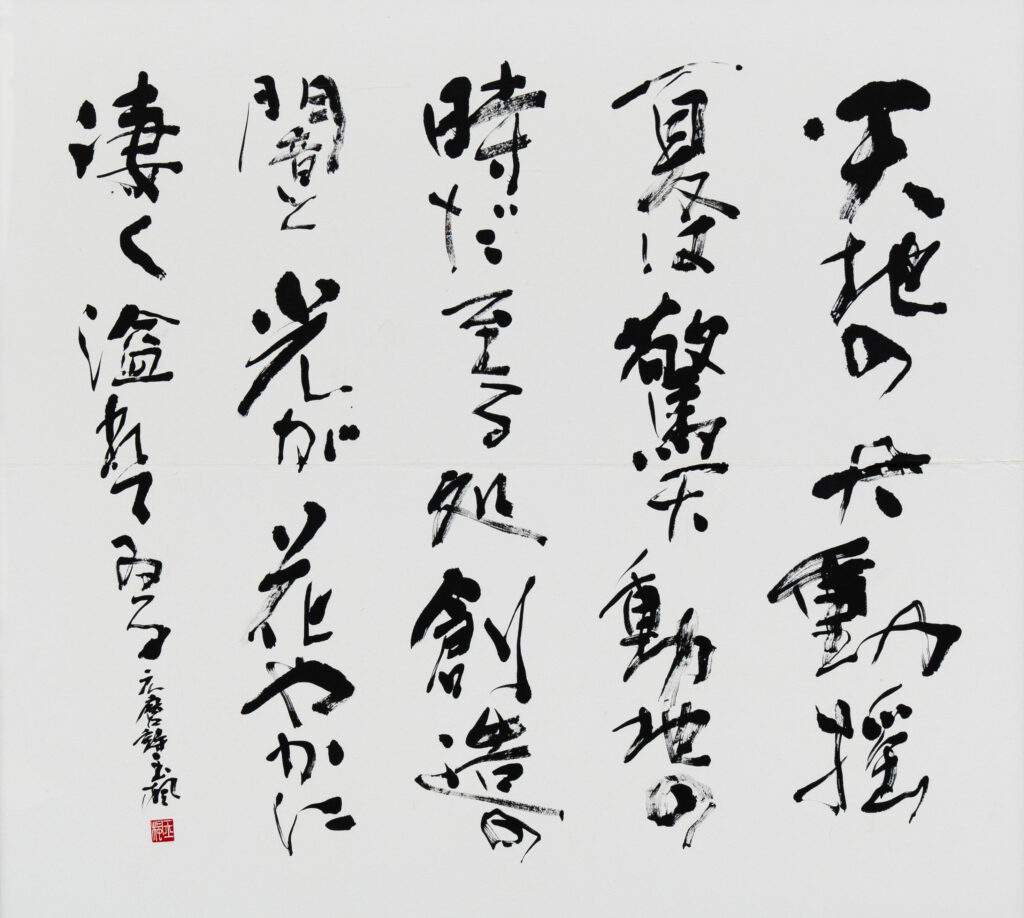 天地の大動揺
夏は驚天動地の
時だ至る処創造の
闇と光が花やかに
凄く溢れてゐる
元麿詩 玉楓